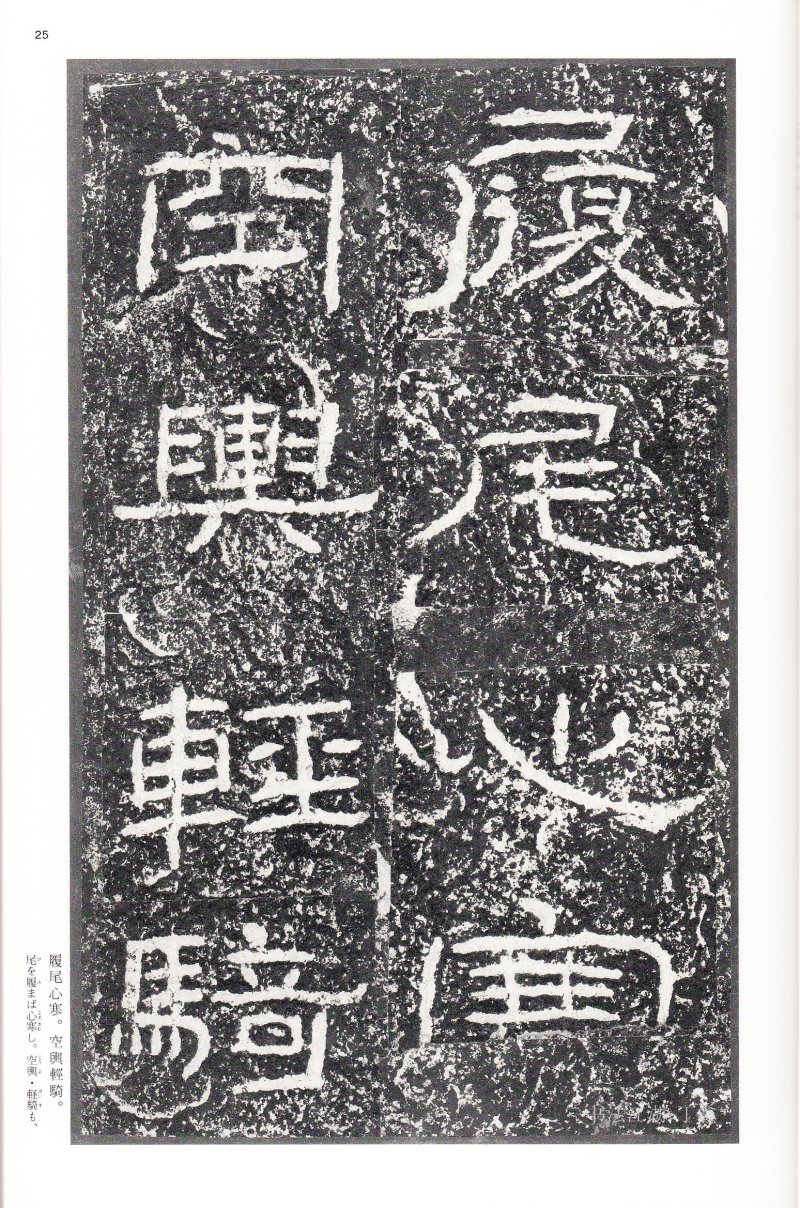 25
履尾心寒
空輿輕騎
履尾心寒。空輿輕騎。
尾を履まば心寒し。空輿・軽騎も、